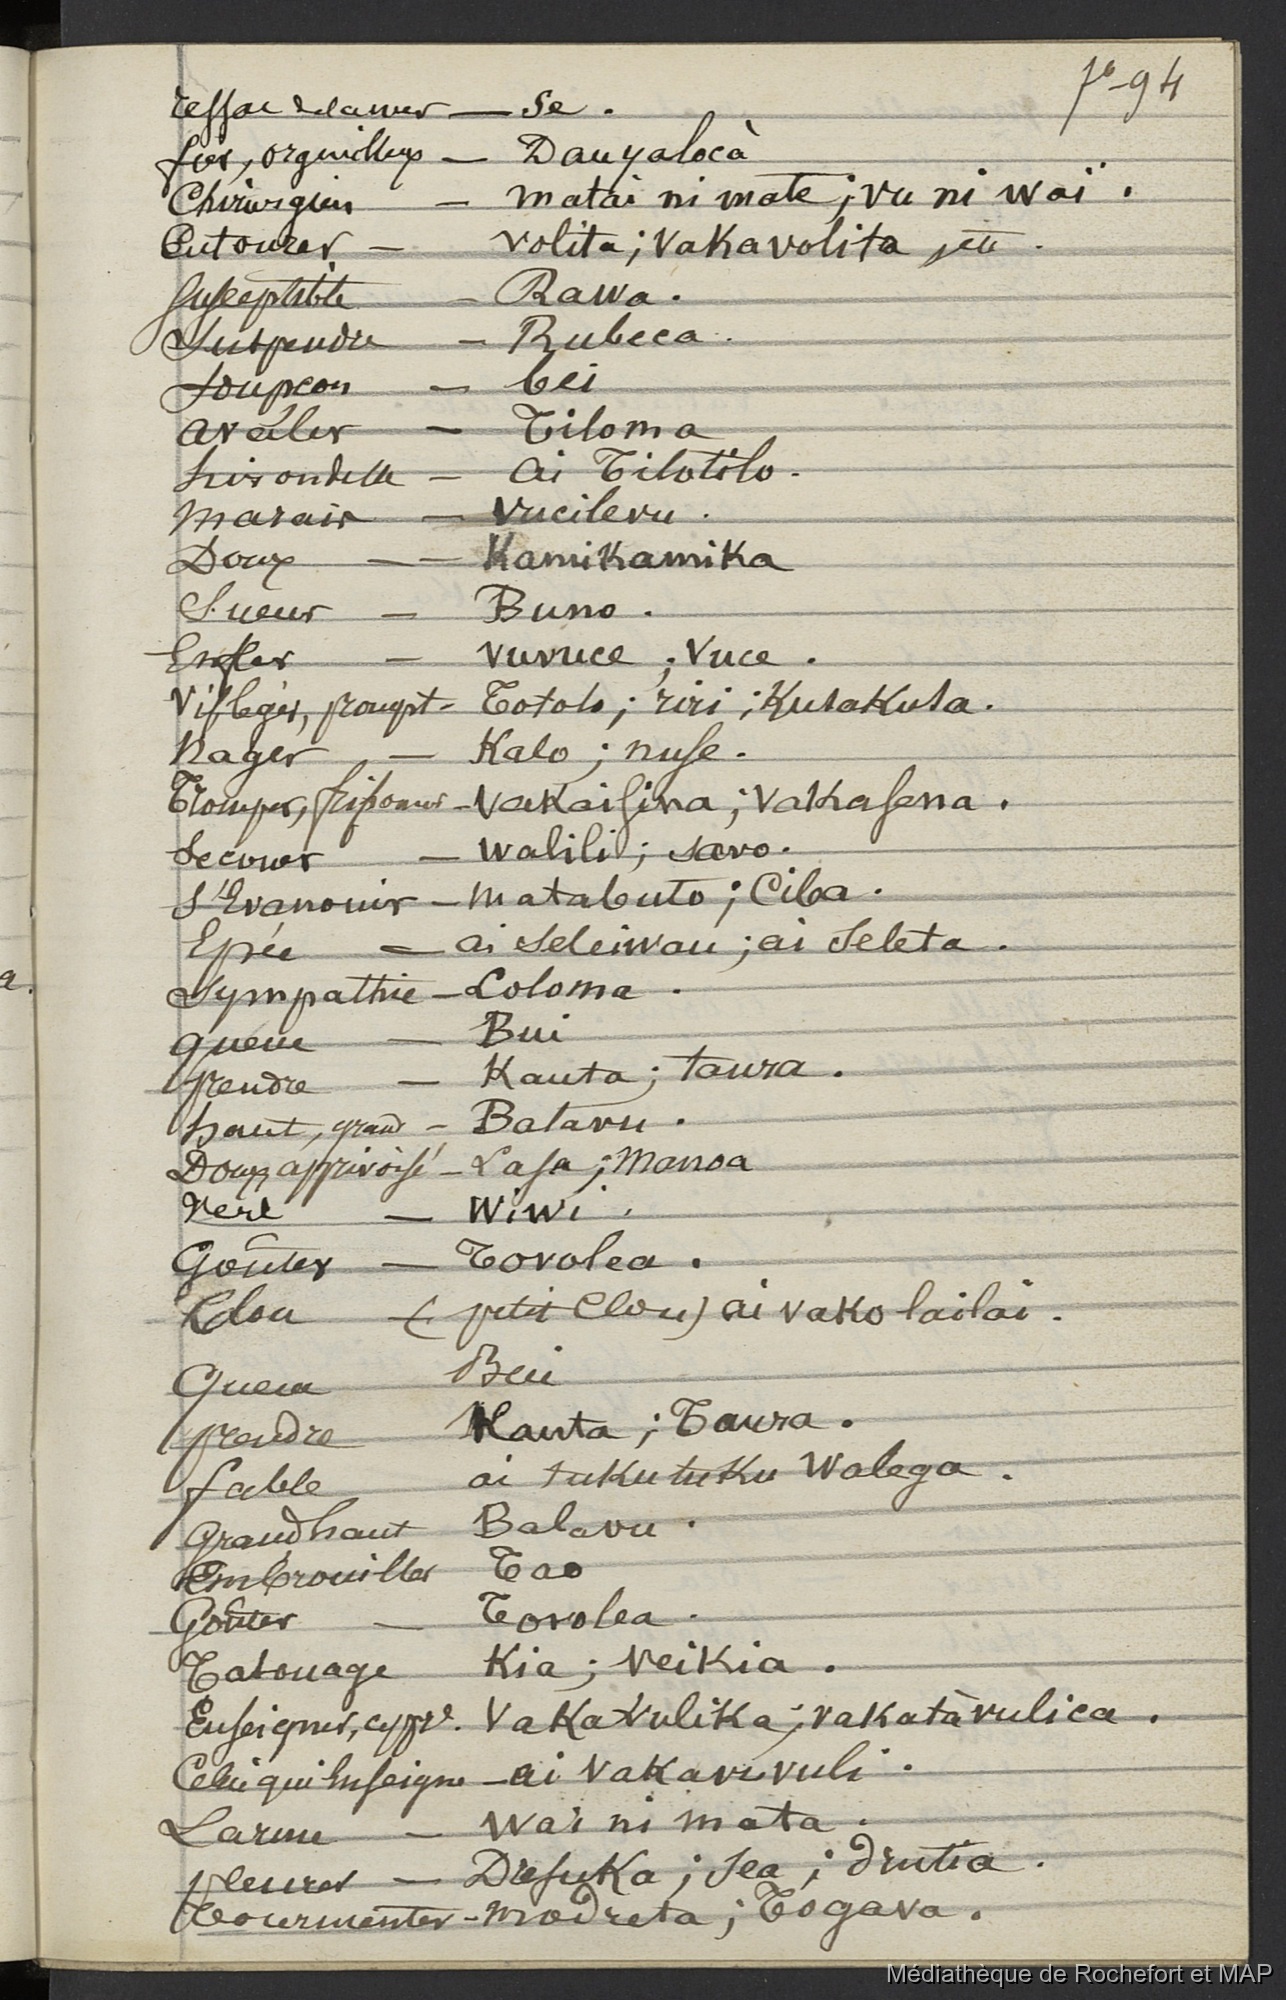 fo-94
— Se.
fier, orgueilleux — Dauyalocà
Chirurgien — matai ni mate; vu ni waï.
Entourer — volita; vakavolita
Susceptible — Rawa.
Suspendre — Rubeca.
Soupçon — bei
avaler — Tiloma
hirondelle — ai Tilotilo.
Marais — Vucilevu.
Doux — Kamikamika
Sueur — Buno.
Enfler — vuvuce; Vuce.
Vif léger, prompt — Totolo; riri; Kusakusa.
Nager — Kalo; nuse.
Tromper, — vakaisina; vakasena.
Secouer — walili; savo.
S'Evanouir — matabuto; Ciba.
Epée — ai seleiwau; ai seleta.
Sympathie — Loloma.
queue — Bui
prendre — Kauta; taura.
haut, grand — Balavu.
Doux apprivoisé — Lasa; Manoa
Vert — Wiwi.
Goûter — Tovolea.
Clou — (petit Clou) ai vako lailai.
Queue Bui
prendre Kauta; Taura.
fable ai tukutuku Walega.
Grand haut Balavu.
Embrouiller Tao
Goûter — Tovolea.
Tatouage Kia; Veikia.
Enseigner, Vakavulika; vakatàvulica.
Celui qui Enseigne — ai vakavuvuli.
Larme — Wai ni mata.
pleurer — Dresuka; sea; drutia.
Tourmenter — modreta; Togava.
Médiathèque de Rochefort et MAP